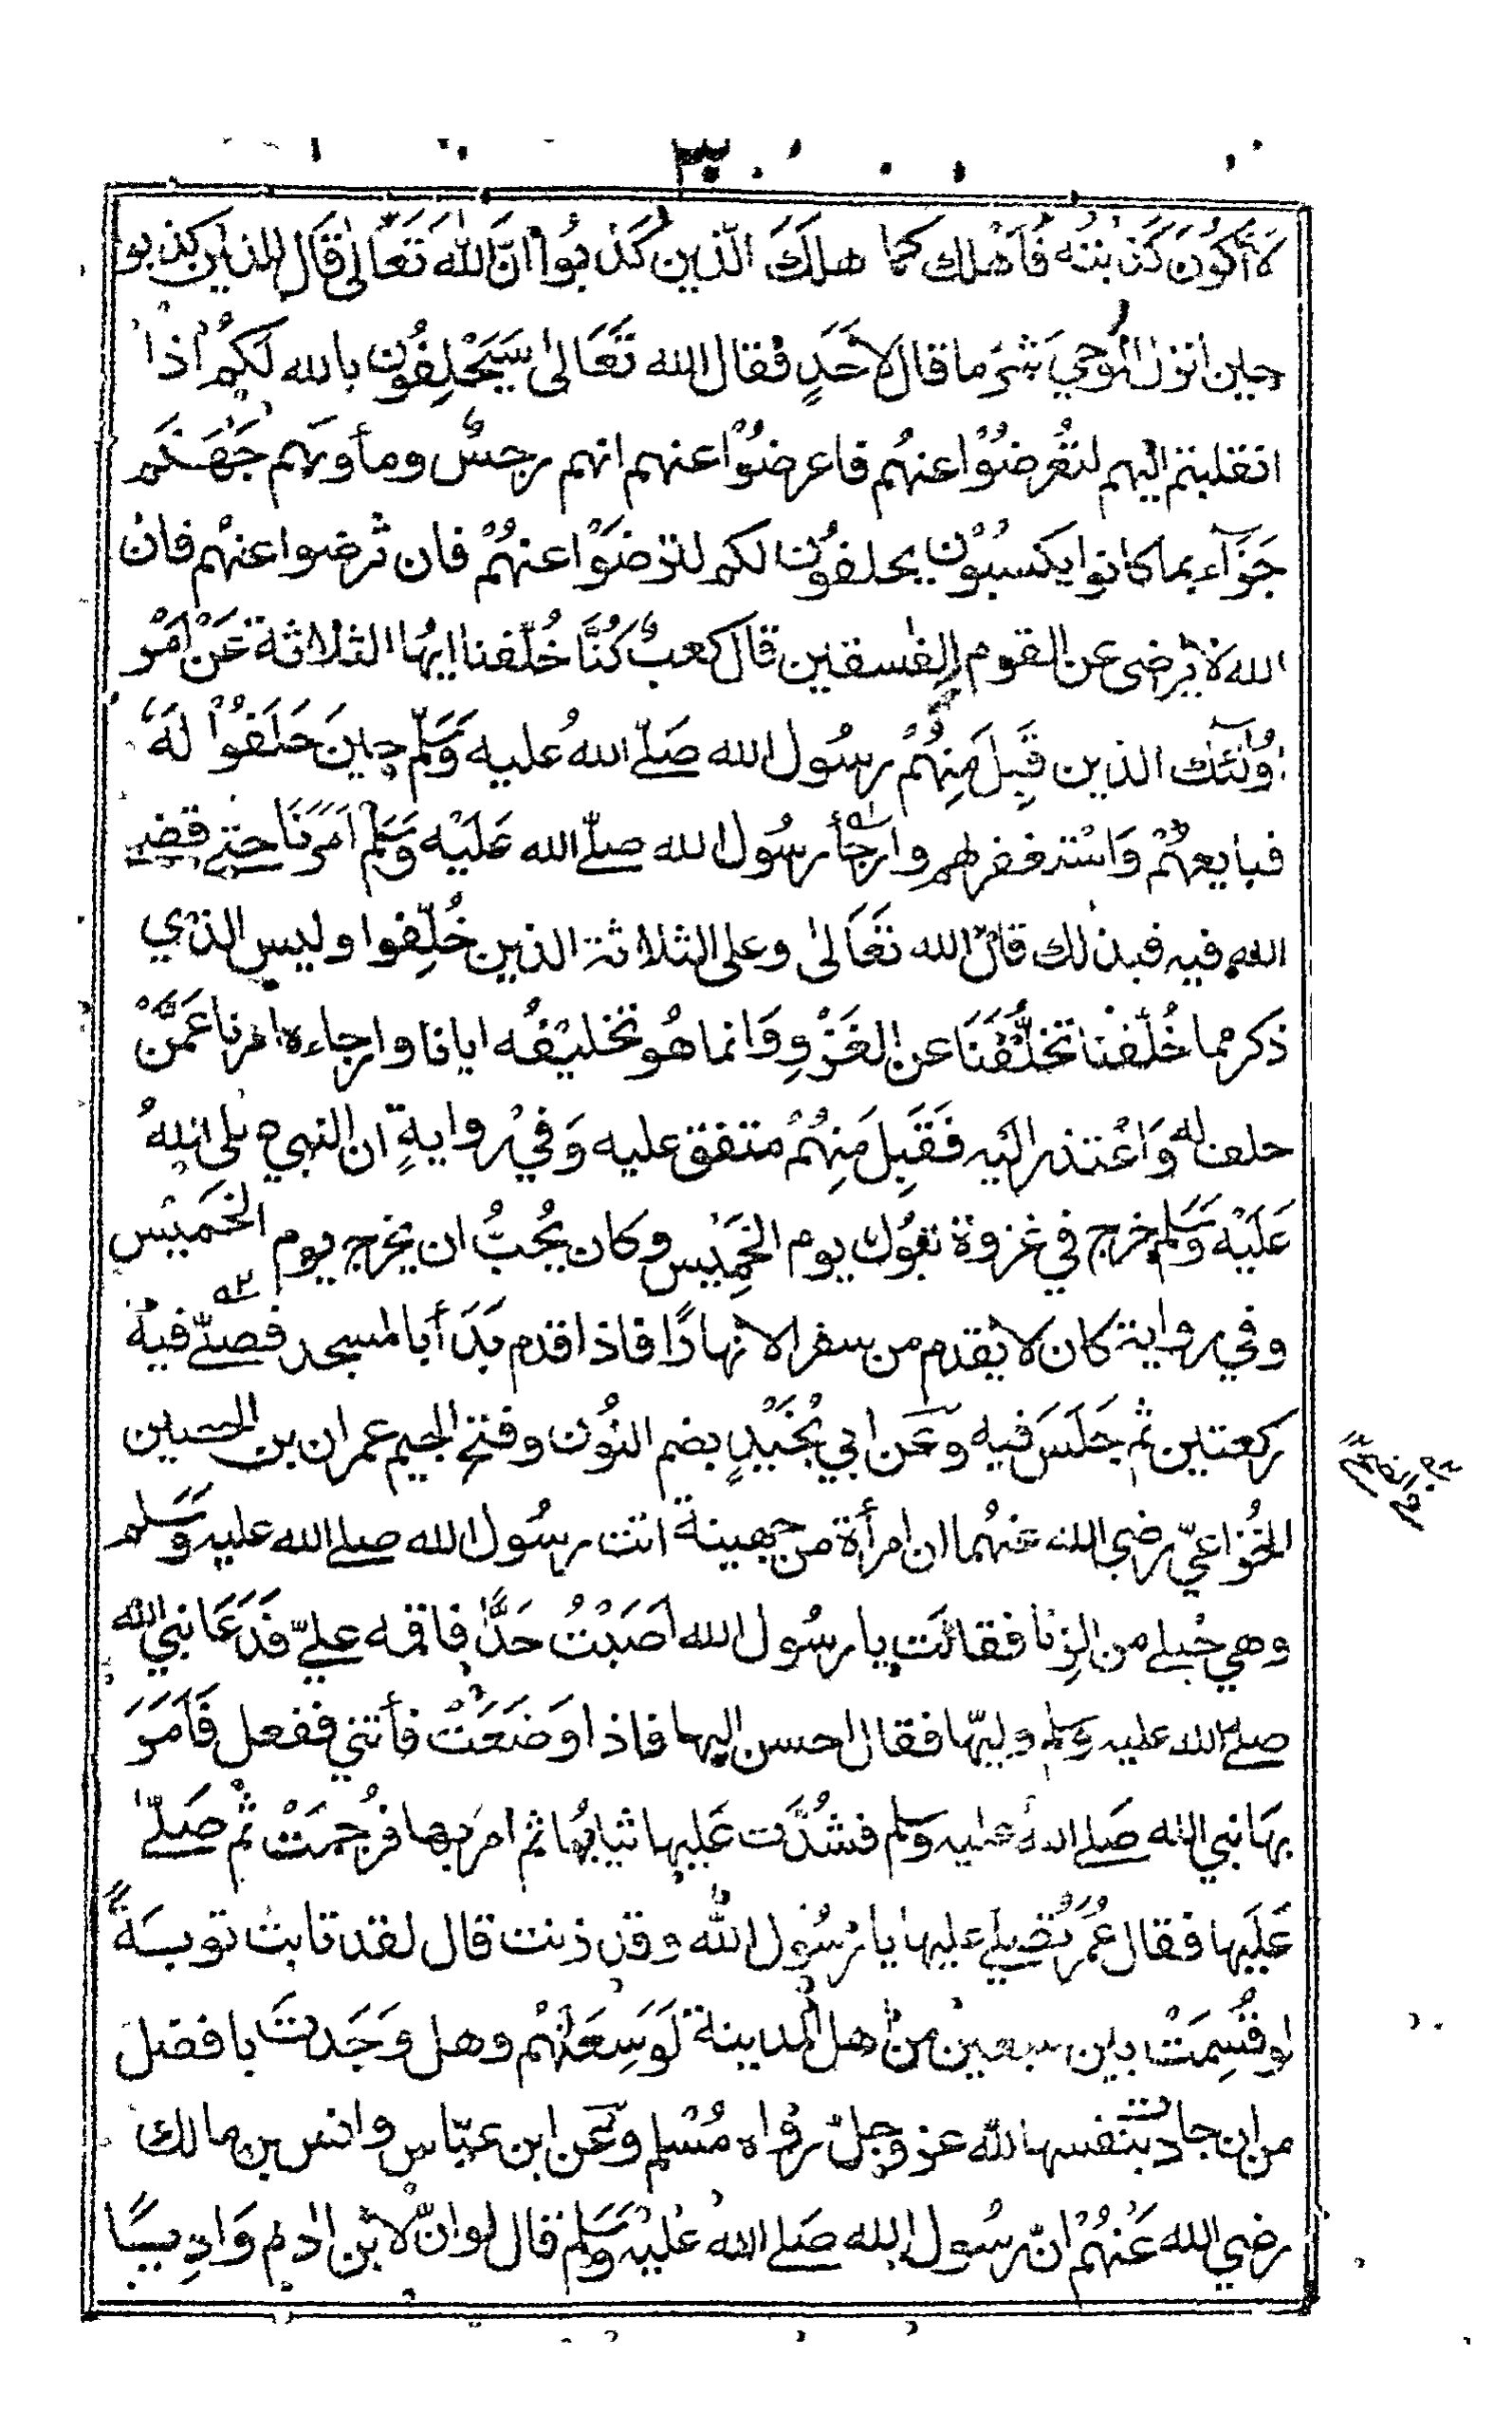 ٣٠
لَا أَكُوْنَ كَذَبْتُه فَاَهْلك كما هلَكَ الّذين كَذَبُوا انَّ الله تَعَالٰى قَال للذين كذبوا
حين انزل الوحيَ شرّ ما قال لاَحَدٍ فقال الله تَعَالىٰ سَيَحْلِفُون بالله لَكُمْ اذا
انقلبتم اليهم لتُعْرضُوْا عنهُم فاعرضُوْا عنهم انهم رجسٌ ومأوٰىهم جَهَنَّم
جَزَآء بما كانوا يكسبُوْن يحلفوُن لكم لتَرْضَوْا عنهُمْ فان تَرضوا عنهْم فانْ
الله لا يَرضى عن القوم الفٰسقين قال كعبٌ كُنَّا خُلّفنا ايهُا الثلاثة عَنْ اَمْر
اُولٰٓئك الذين قَبِلَ مِنهُمْ رسُول الله صَلّے اللهُ عليه وَسَلّم حِينَ حَلَفُوْا لَهَ
فبايعهُمْ وَاسْتغفر لهم وارجأ رسُول الله صلّے الله عَلَيْه وَسَلَم اَمْرَنَا حتے قضے
الله فيه فبذٰلك قال الله تَعَالىٰ وعلى الثلاثة الذين خُلِّفوا وليس الذي
ذكر مما خُلّفْنا تخَلُّفَنَا عن الغَزْوِ وَانما هُو تخليْفُه ايانا وارجاءه امرنا عَمَّنْ
حلف له وَاعْتذر اليَه فَقَبِلَ مَنِهُمْ متفق عليه وَفيْ روايةٍ ان النبي صلى اللهُ
عَلَيْه وَسَلم خرج في غزوة تبوُك يوم الخَمِيْس وكان يُحُبُّ ان يخرج يوم الخَميْس
وفي رواية كان لا يَقدم من سفر الا نهارًا فاذا قدم بَدَأ بالمسجد فصلّے فيهْ
ركعتين ثم جَلَسَ فيه وعَن ابي نُجَيْدٍ بضم النُون وفتح الجيم عمران بن الحصين
الخُزاعيّ رضي الله عنهُما ان امرأة من جهينة اتت رسُول الله صلے الله عليه وَسَلم
وهي حُبلے من الزِنا فقالَت يا رسُول الله اَصَبْتُ حَدًّا فاقمه عليّ فَدَعَا نبي الله
صلے الله عليه وسلم وليّها فقال احسن اليها فاذا وَضَعَتْ فأتني ففعل فَاَمَرَ
بهَا نبي الله صَلے اللهُ عليه وسلم فشُدَّت عَليها ثيابُها ثم امَر بها فرُجمَتْ ثم صَلّے
عَلَيها فقال عُمَرُ تُصَلے عليها يا رسُول الله وقد زنت قال لقد تابت توبــةً
لو قُسِمَتْ بين سبعين من اهل المدينة لَوَسِعَتْهُمْ وهل وَجَدت بافضل
من ان جادت بنفسها لله عز وجل رواه مُسْلم وعَن ابن عبّاس وانس بن مالك
رضي الله عَنهُمْ انّ رسُول الله صَلے الله عليْه وَسَلم قال لو انّ لابْن اٰدم وَادِيــًا